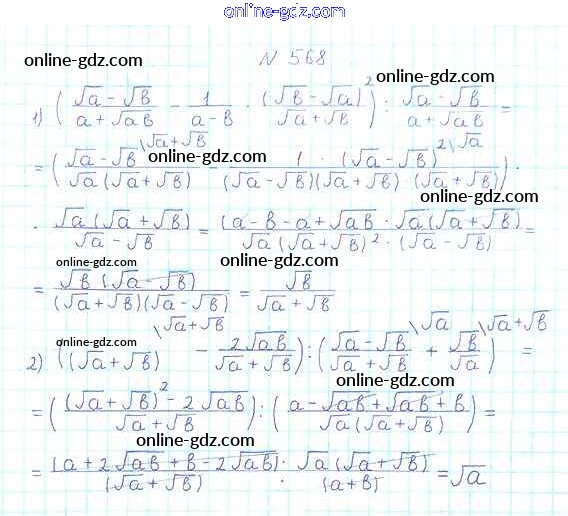 online-gdz.com
N 568
online-gdz.com online-gdz.com
1) ( (√a - √b)/(a + √ab) - 1/(a - b) · (√b - √a)²/(√a + √b) ) : (√a - √b)/(a + √ab) =
online-gdz.com
= ( (√a - √b)\√a + √b/(√a (√a + √b)) - 1 · (√a - √b)²\√a/((√a - √b)(√a + √b) (√a + √b)) ) ·
online-gdz.com
· √a (√a + √b)/(√a - √b) = (a - b - a + √ab · √a (√a + √b)/(√a (√a + √b)² · (√a - √b)) =
online-gdz.com
= √b (√a - √b)/((√a + √b)(√a - √b)) = √b/(√a + √b)
online-gdz.com
2) ((√a + √b)\√a + √b - 2√ab/(√a + √b)) : ( (√a - √b)\√a/(√a + √b) + √b\√a + √b/√a ) =
online-gdz.com
online-gdz.com
= ( ((√a + √b)² - 2√ab)/(√a + √b) ) : ( (a - √ab + √ab + b)/(√a (√a + √b)) ) =
online-gdz.com
= (a + 2√ab + b - 2√ab) · √a (√a + √b)/((√a + √b) · (a + b)) = √a
online-gdz.com